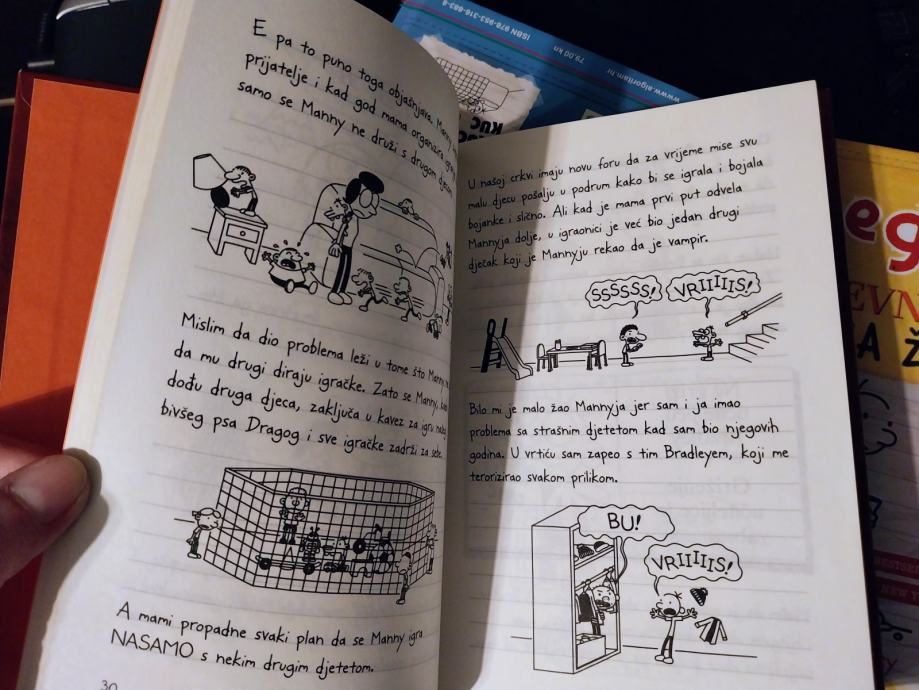 E pa to puno toga objašnjava. Manny
prijatelje i kad god mama organizira
samo se Manny ne druži s drugom djecom
Mislim da dio problema leži u tome što Manny
da mu drugi diraju igračke. Zato se Manny,
dođu druga djeca, zaključa u kavez za igru
bivšeg psa Dragog i sve igračke zadrži za sebe.
A mami propadne svaki plan da se Manny igra
NASAMO s nekim drugim djetetom.
30
U našoj crkvi imaju novu foru da za vrijeme mise svu
malu djecu pošalju u podrum kako bi se igrala i bojala
bojanke i slično. Ali kad je mama prvi put odvela
Mannyja dolje, u igraonici je već bio jedan drugi
dječak koji je Mannyju rekao da je vampir.
SSŠSSS!
VRIIIIIS!
Bilo mi je malo žao Mannyja jer sam i ja imao
problema sa strašnim djetetom kad sam bio njegovih
godina. U vrtiću sam zapeo s tim Bradleyem, koji me
terorizirao svakom prilikom.
BU!
VRIIIIIS!
ISBN 978-953-316-663-8
79,00 kn
www.algoritam.hr
KUC
eg
EVN
A Ž